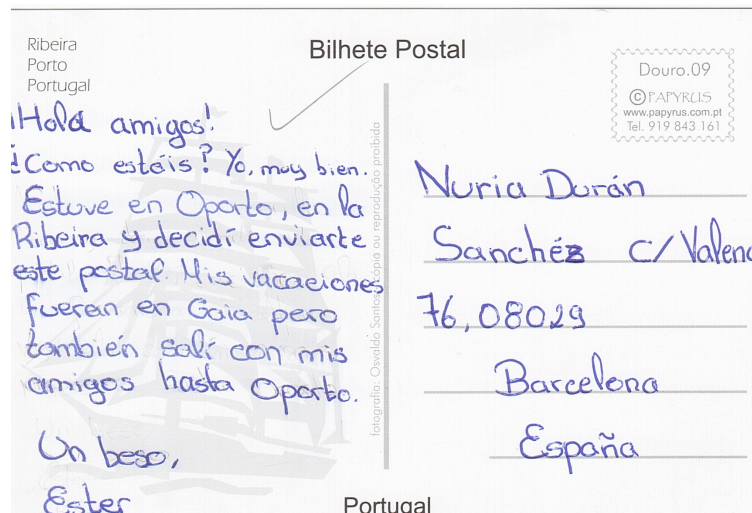 Ribeira
Porto
Portugal
Bilhete Postal
Douro.09
© PAPYRUS
www.papyrus.com.pt
Tel. 919 843 161
¡Hola amigos!
¿Como estáis? Yo, muy bien.
Estuve en Oporto, en la
Ribeira y decidí enviarte
este postal. Mis vacaciones
fueran en Gaia pero
también salí con mis
amigos hasta Oporto.
Un beso,
Ester
fotografia: Osvaldo Santos cópia ou reprodução proibida
Nuria Durán
Sanchéz C/Valenc
76, 08029
Barcelona
España
Portugal